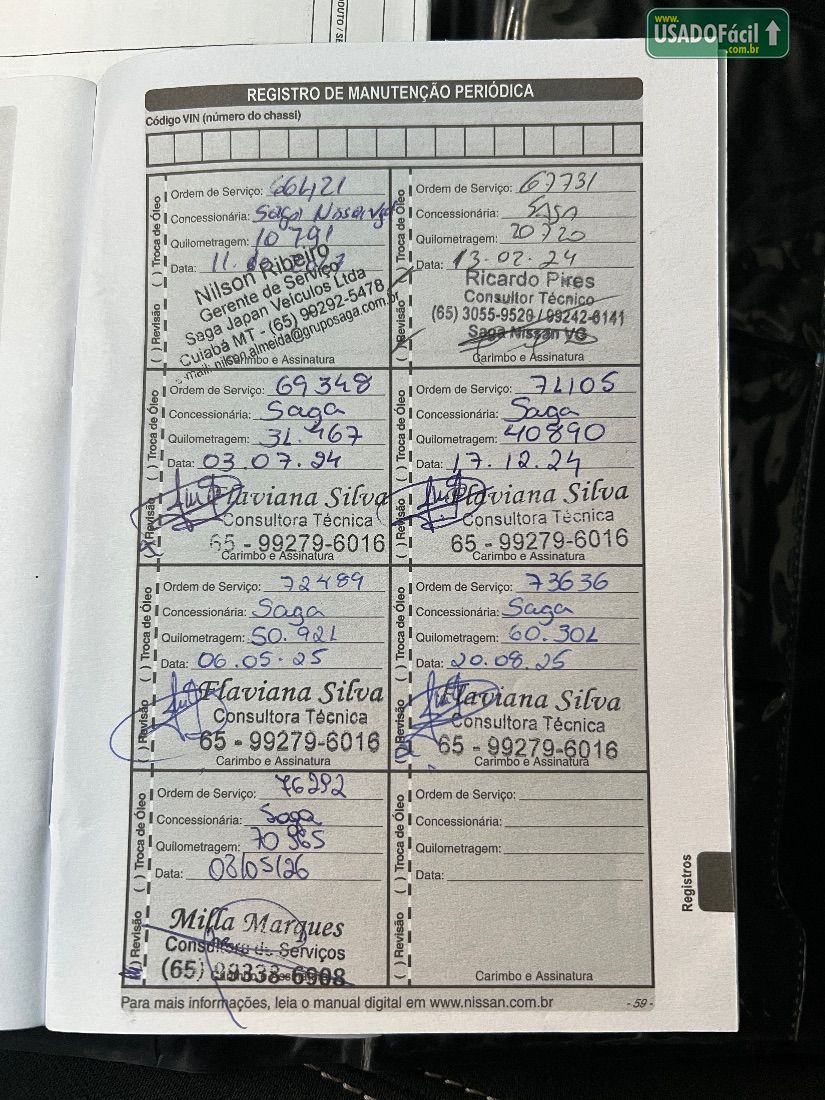 www.
USADOFácil
.com.br
REGISTRO DE MANUTENÇÃO PERIÓDICA
Código VIN (número do chassi)
( ) Revisão ( ) Troca de Óleo
Ordem de Serviço: 66421
Concessionária: Saga Nissan Vg
Quilometragem: 10791
Data: 11.
Nilson Ribeiro
Gerente de Serviço
Saga Japan Veículos Ltda
Cuiabá MT - (65) 99292-5478
e-mail: nilson.almeida@gruposaga.com.br
Carimbo e Assinatura
( ) Revisão ( ) Troca de Óleo
Ordem de Serviço: 67731
Concessionária: SAGA
Quilometragem: 20720
Data: 13.02.24
Ricardo Pires
Consultor Técnico
(65) 3055-9520 / 99242-6141
Saga Nissan VG
Carimbo e Assinatura
( ) Revisão ( ) Troca de Óleo
Ordem de Serviço: 69348
Concessionária: Saga
Quilometragem: 31.467
Data: 03.07.24
Flaviana Silva
Consultora Técnica
65 - 99279-6016
Carimbo e Assinatura
( ) Revisão ( ) Troca de Óleo
Ordem de Serviço: 71105
Concessionária: Saga
Quilometragem: 40890
Data: 17.12.24
Flaviana Silva
Consultora Técnica
65 - 99279-6016
Carimbo e Assinatura
( ) Revisão ( ) Troca de Óleo
Ordem de Serviço: 72489
Concessionária: Saga
Quilometragem: 50.921
Data: 06.05.25
Flaviana Silva
Consultora Técnica
65 - 99279-6016
Carimbo e Assinatura
( ) Revisão ( ) Troca de Óleo
Ordem de Serviço: 73636
Concessionária: Saga
Quilometragem: 60.301
Data: 20.08.25
Flaviana Silva
Consultora Técnica
65 - 99279-6016
Carimbo e Assinatura
( ) Revisão ( ) Troca de Óleo
Ordem de Serviço: 76292
Concessionária: Saga
Quilometragem: 70365
Data: 03/05/26
Milla Marques
Consultora de Serviços
(65) 99338-6908
Carimbo e Assinatura
( ) Revisão ( ) Troca de Óleo
Ordem de Serviço:
Concessionária:
Quilometragem:
Data:
Carimbo e Assinatura
Registros
Para mais informações, leia o manual digital em www.nissan.com.br
- 59 -